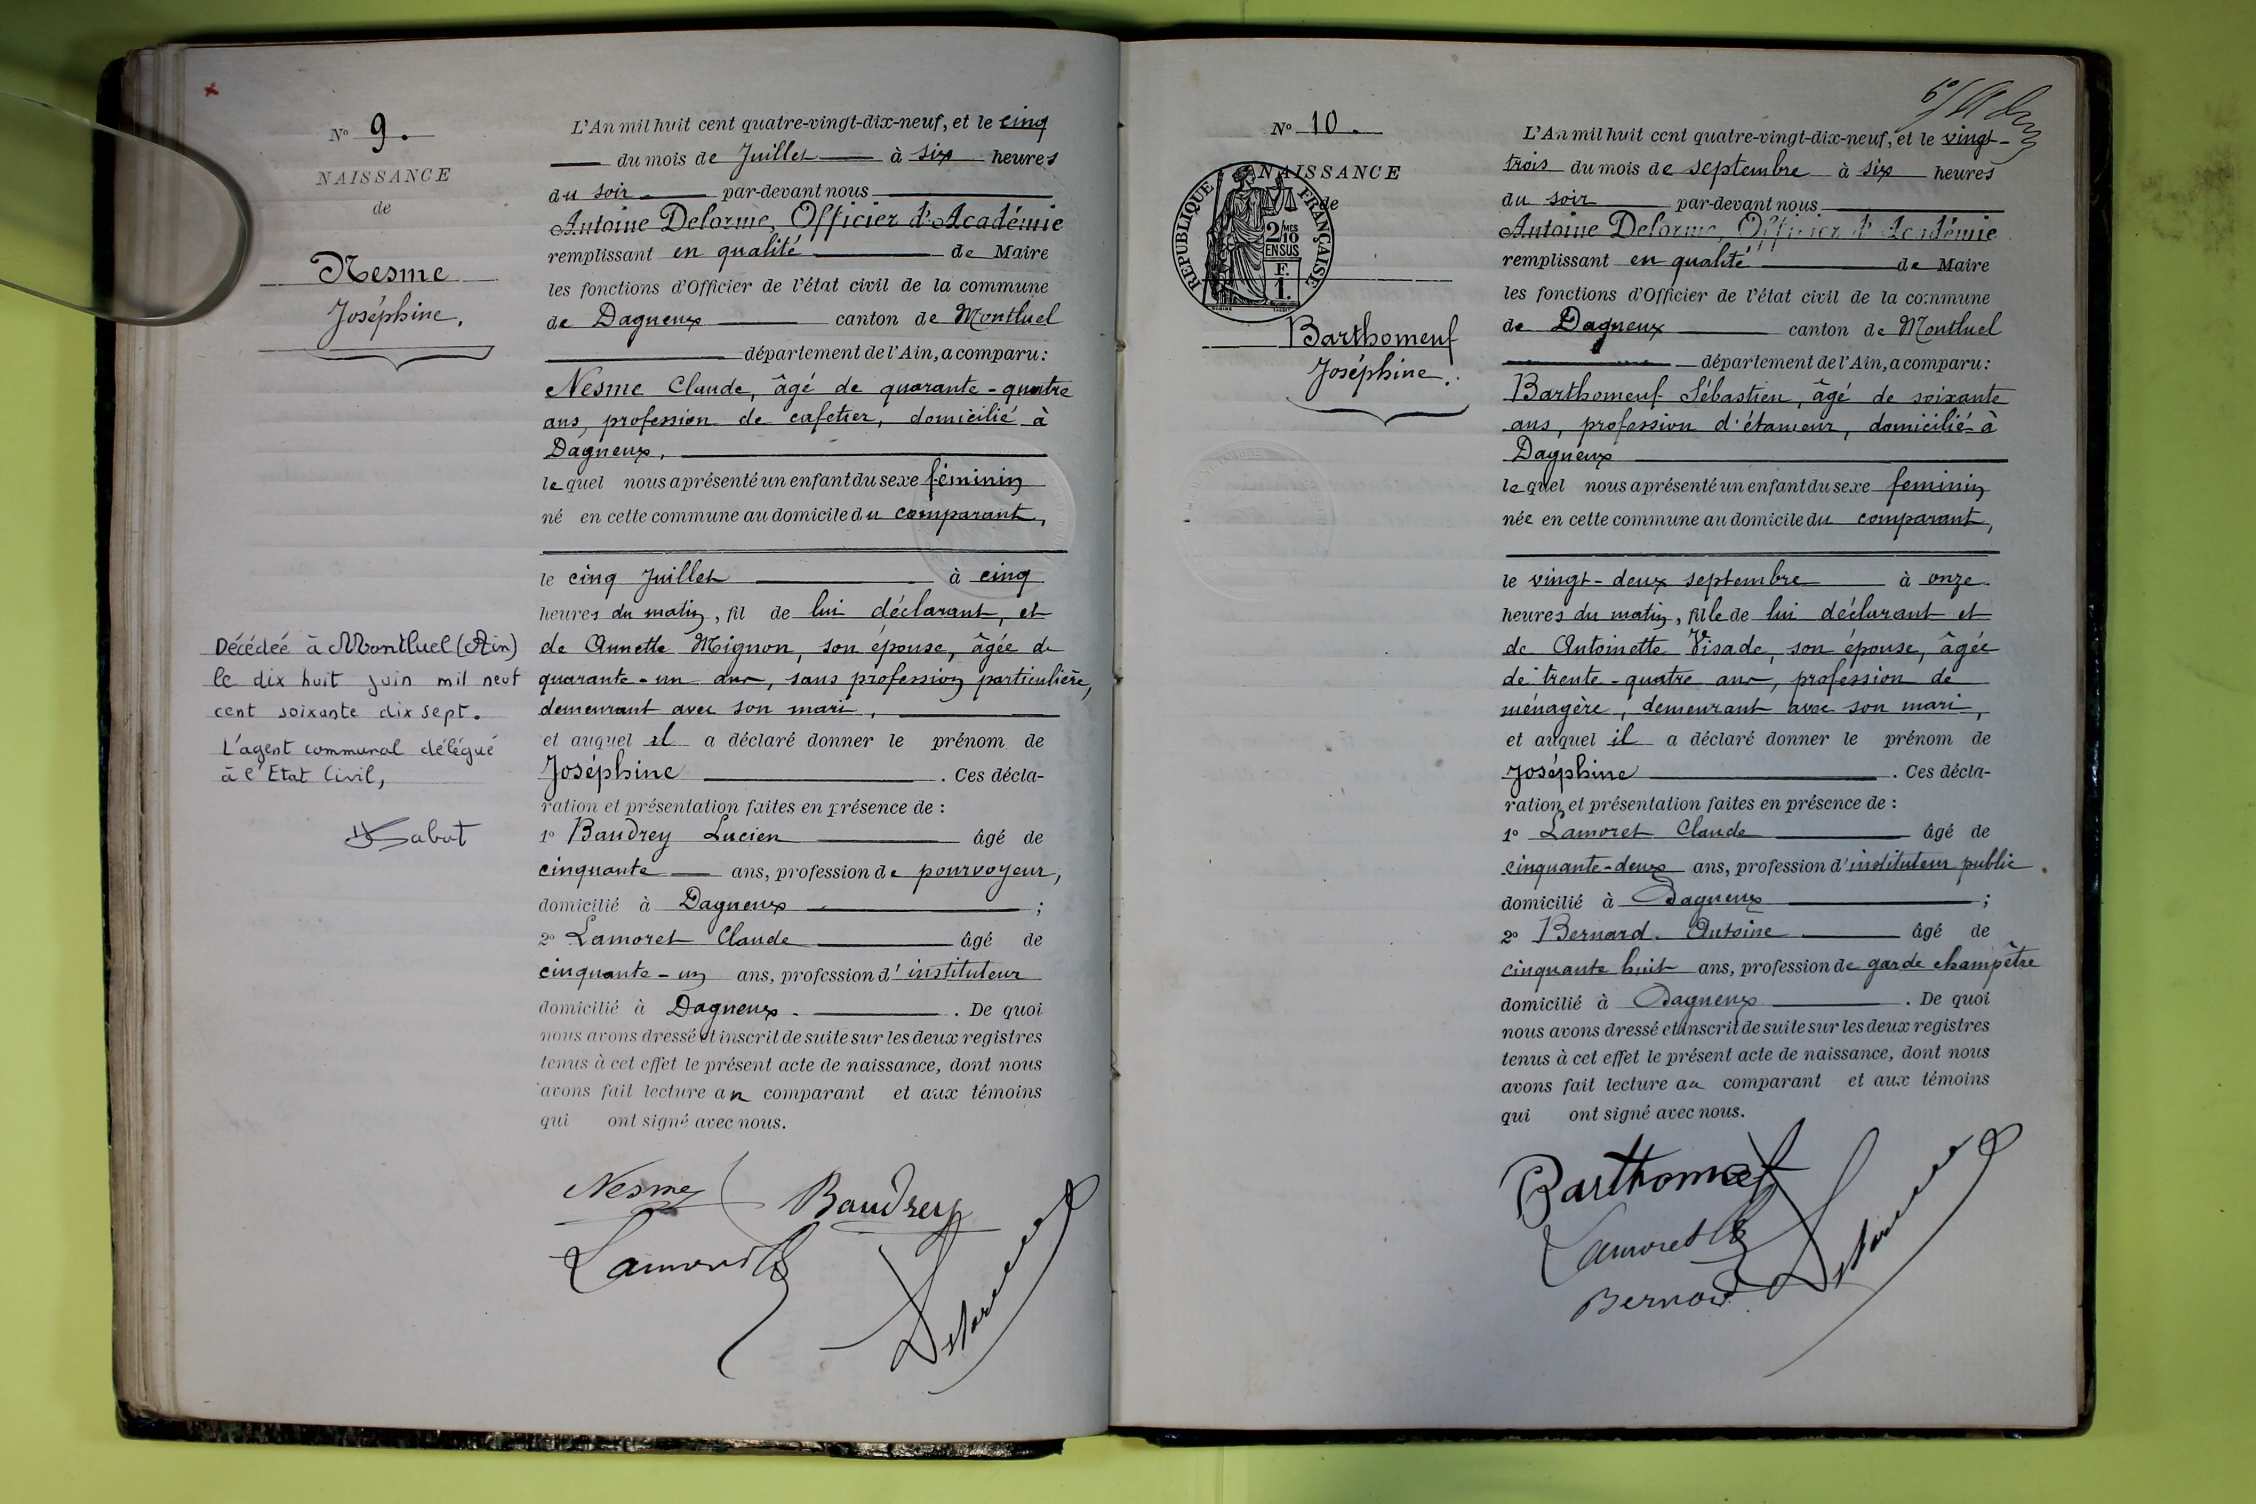 N° 9.
NAISSANCE
de
Nesme
Joséphine.
Décédée à Montluel (Ain)
le dix huit juin mil neuf
cent soixante dix sept.
L'agent communal délégué
à l'Etat Civil,
L'An mil huit cent quatre-vingt-dix-neuf, et le cinq
du mois de Juillet à six heures
du soir par-devant nous
Antoine Delorme, Officier d'Académie
remplissant en qualité de Maire
les fonctions d'Officier de l'état civil de la commune
de Dagneux canton de Montluel
département de l'Ain, a comparu :
Nesme Claude, âgé de quarante-quatre
ans, profession de cafetier, domicilié à
Dagneux,
lequel nous a présenté un enfant du sexe féminin
né en cette commune au domicile du comparant,
le cinq Juillet à cinq
heures du matin, fil de lui déclarant, et
de Annette Mignon, son épouse, âgée de
quarante-un ans, sans profession particulière,
demeurant avec son mari,
et auquel il a déclaré donner le prénom de
Joséphine . Ces décla-
ration et présentation faites en présence de :
1° Baudrey Lucien âgé de
cinquante ans, profession de pourvoyeur,
domicilié à Dagneux ;
2° Lamoret Claude âgé de
cinquante-un ans, profession d'instituteur
domicilié à Dagneux. . De quoi
nous avons dressé et inscrit de suite sur les deux registres
tenus à cet effet le présent acte de naissance, dont nous
avons fait lecture au comparant et aux témoins
qui ont signé avec nous.
Nesme Baudrey
Lamoret
Delorme
N° 10.
NAISSANCE
de
RÉPUBLIQUE FRANÇAISE
2/10 MES
EN SUS
F.
1.
Barthomeuf
Joséphine.
L'An mil huit cent quatre-vingt-dix-neuf, et le vingt-
trois du mois de septembre à six heures
du soir par-devant nous
Antoine Delorme, Officier d'Académie
remplissant en qualité de Maire
les fonctions d'Officier de l'état civil de la commune
de Dagneux canton de Montluel
département de l'Ain, a comparu :
Barthomeuf Sébastien, âgé de soixante
ans, profession d'étameur, domicilié à
Dagneux
lequel nous a présenté un enfant du sexe feminin
née en cette commune au domicile du comparant,
le vingt-deux septembre à onze
heures du matin, fille de lui déclarant et
de Antoinette Visade, son épouse, âgée
de trente-quatre ans, profession de
ménagère, demeurant avec son mari,
et auquel il a déclaré donner le prénom de
Joséphine . Ces décla-
ration et présentation faites en présence de :
1° Lamoret Claude âgé de
cinquante-deux ans, profession d'instituteur public
domicilié à Dagneux ;
2° Bernard Antoine âgé de
cinquante huit ans, profession de garde champêtre
domicilié à Dagneux . De quoi
nous avons dressé et inscrit de suite sur les deux registres
tenus à cet effet le présent acte de naissance, dont nous
avons fait lecture au comparant et aux témoins
qui ont signé avec nous.
Barthomeuf
Lamoret
Delorme
Bernard